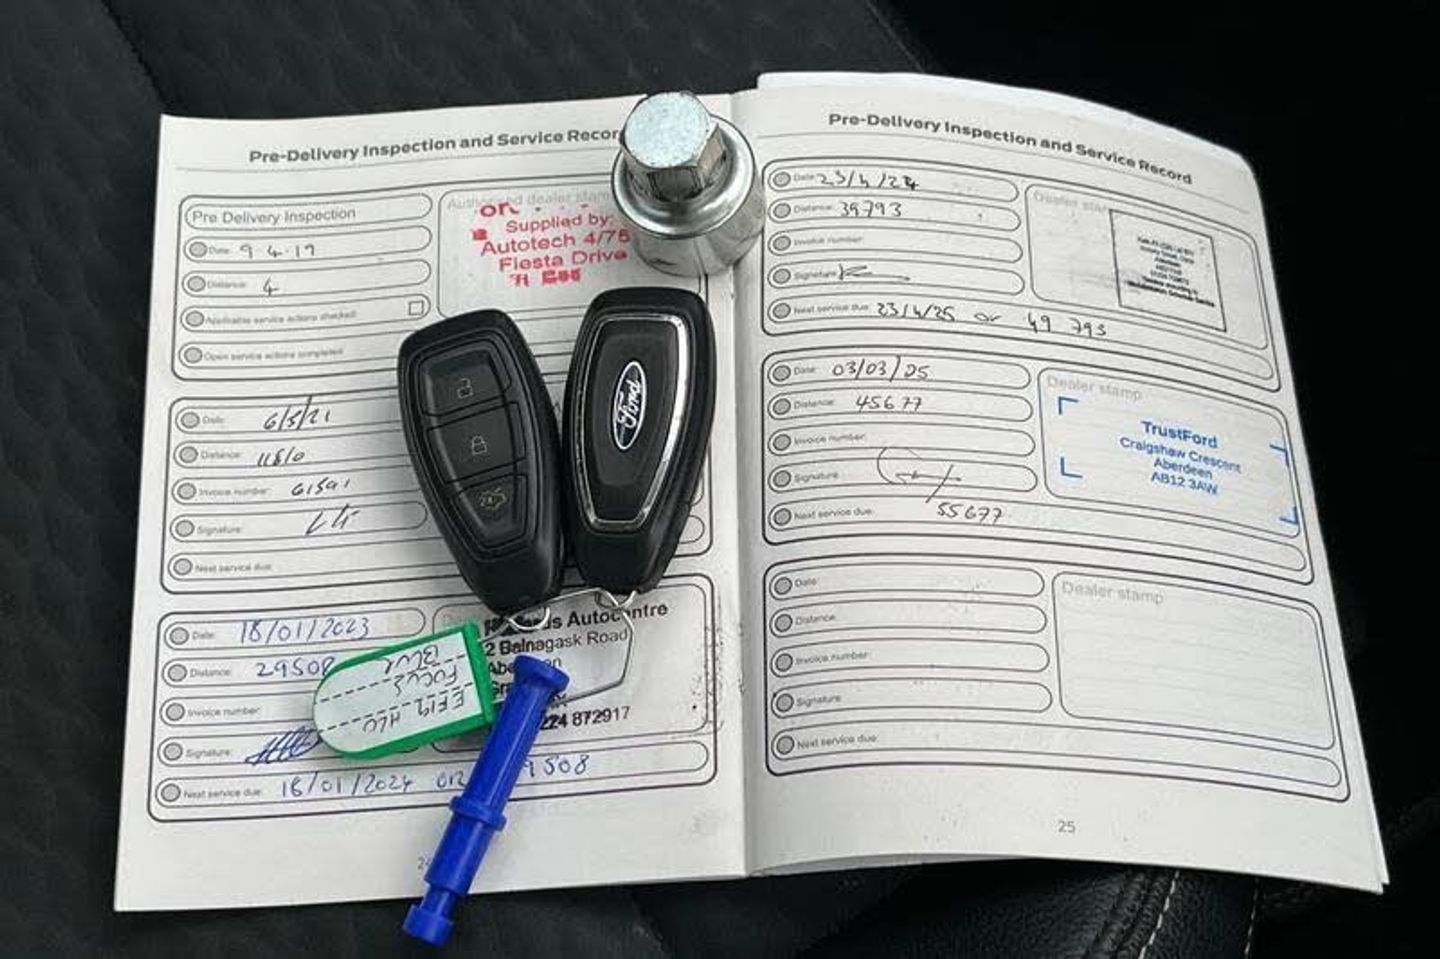 Pre-Delivery Inspection and Service Record
Pre Delivery Inspection
Date: 9 4 · 19
Distance: 4
Applicable service actions checked:
Open service actions completed
Authorised dealer stamp
Supplied by:
Autotech 4/78
Fiesta Drive
Date: 6/5/21
Distance:
Invoice number:
Signature:
Next service due:
Date: 18/01/2023
Distance: 29508
Invoice number:
Signature:
Next service due: 18/01/2024 OR 9508
Autocentre
2 Balnagask Road
224 872917
BLUE
FOCUS
EF19 HLU
Ford
Pre-Delivery Inspection and Service Record
Date: 23/4/24
Distance: 39793
Invoice number:
Signature:
Next service due: 23/4/25 or 49 793
Dealer stamp
Date: 03/03/25
Distance: 45677
Invoice number:
Signature:
Next service due: 55677
Dealer stamp
TrustFord
Craigshaw Crescent
Aberdeen
AB12 3AW
Date:
Distance:
Invoice number:
Signature:
Next service due:
Dealer stamp
25